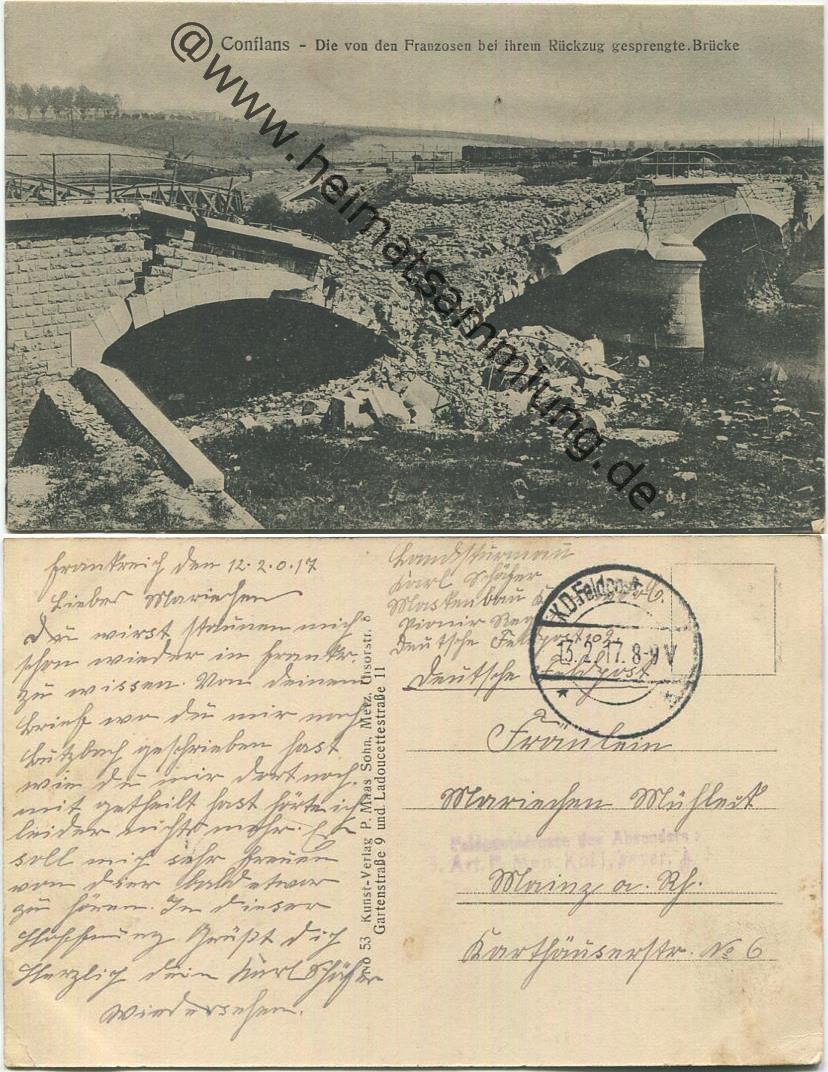 Conflans - Die von den Franzosen bei ihrem Rückzug gesprengte Brücke
@www.heimatsammlung.de
Frankreich den 12.2.0.17
Liebes Mariechen
Du wirst staunen mich
schon wieder in Frankr.
zu wissen. Von deinem
Brief wo du mir nach
Butzbach geschrieben hast
wie du mir dort noch
mit getheilt hast hörte ich
leider nichts mehr. Es
soll mich sehr freuen
von dier bald etwas
zu hören. In dieser
Hoffnung Grüßt dich
Herzlich dein Karl Schäfer
Wiedersehen.
No 53 Kunst-Verlag P. Maas Sohn, Metz,
Gartenstraße 9 und Ladoucettestraße 11
Landsturmann
Karl Schäfer
Maskenbau
Pionir
Deutsche Feldpost
Deutsche Feldpost
K.D. Feldpost
13.2.17. 8-9 V
Fräulein
Mariechen Mühleck
des Absenders
Mainz a. Rh.
Karthäuserstr. No 6